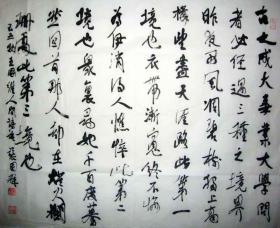 古之成大事業大學問
者必經過三種之境界
昨夜西風凋碧樹獨上高
樓望盡天涯路此第一
境也衣帶漸寬終不悔
為伊消得人憔悴此第二
境也眾裏尋他千百度驀
然回首那人却在燈火闌
珊處此第三境也
王國維人間詞話